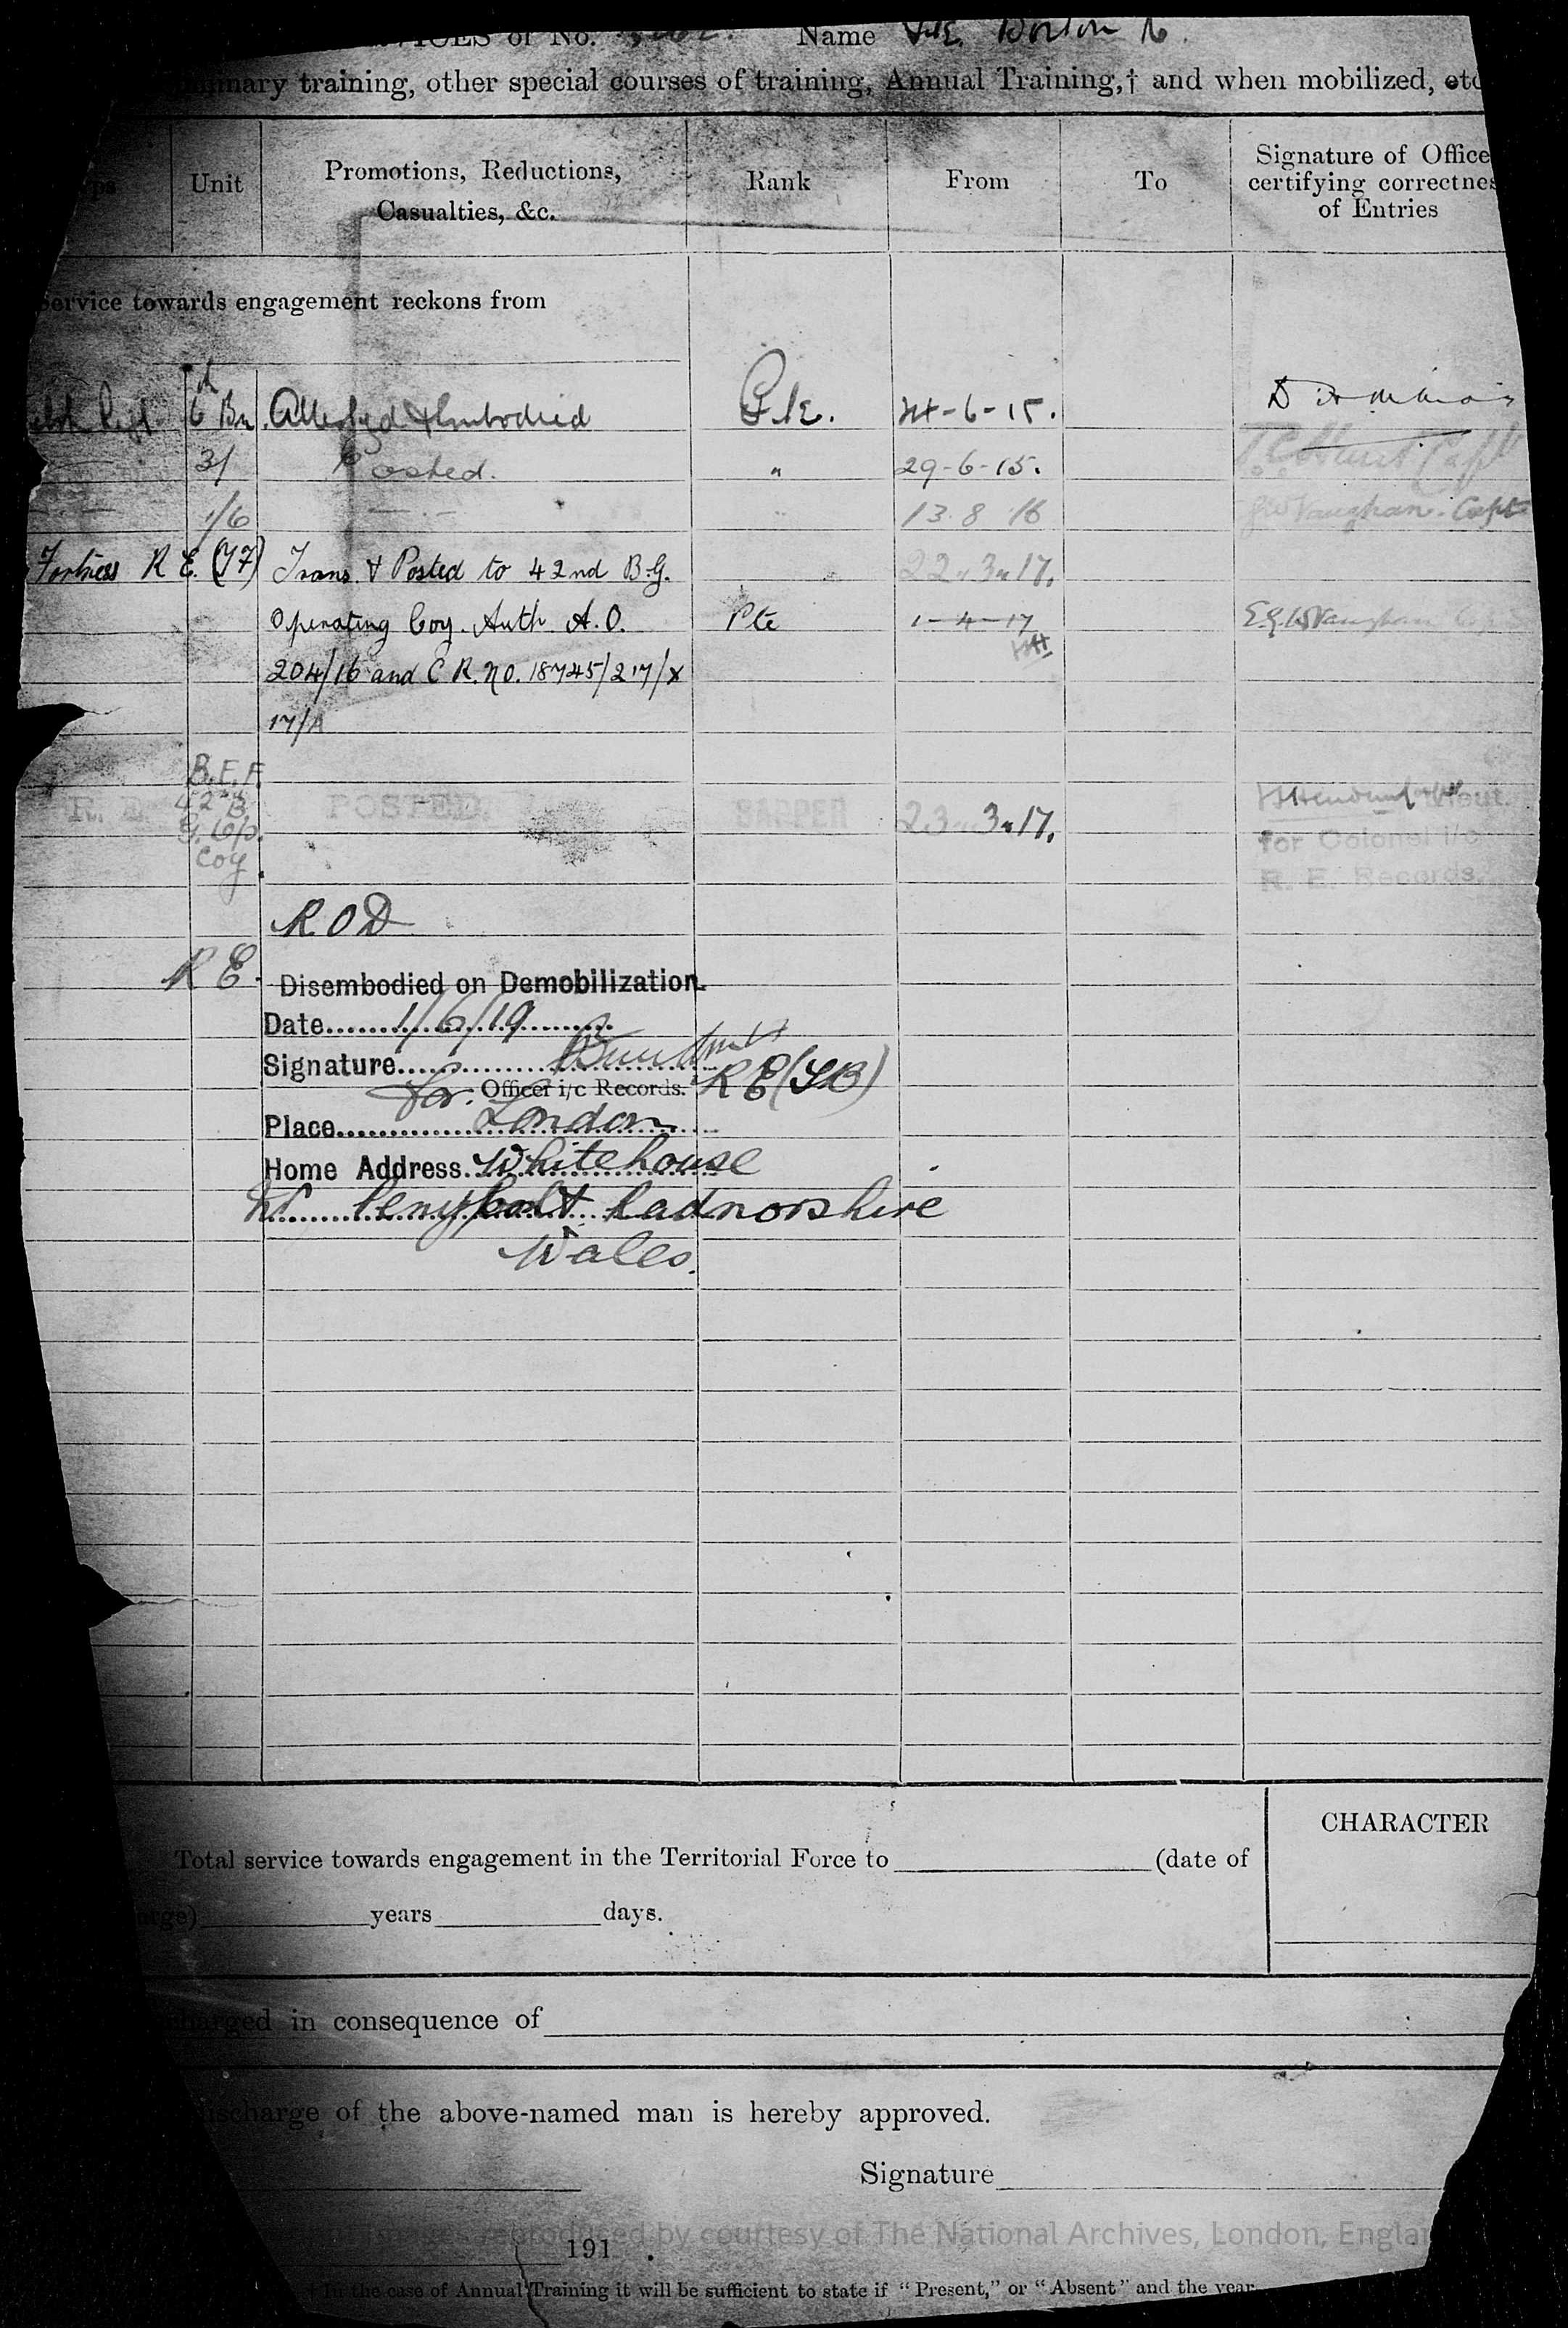 of No. Name Pte. Borton
training, other special courses of training, Annual Training,† and when mobilized, etc
Unit Promotions, Reductions, Casualties, &c. Rank From To Signature of Office certifying correctnes of Entries
Service towards engagement reckons from
6 Bn Attested & Embodied Pte. 24-6-15.
3/ Posted. " 29-6-15. Capt
1/6 — " — 13 8 16 Vaughan. Capt
Fortress R E. (TF) Trans. & Posted to 42nd B.G. 22.3.17.
Operating Coy. Auth. A.O. Pte 1-4-17 Vaughan
204/16 and C R. No. 18745/217/X
17/A
B.E.F.
R. E. 42nd B. G. Op. Coy. POSTED. SAPPER 23.3.17. Lieut.
for Colonel i/c
R. E. Records.
R O D
R E. Disembodied on Demobilization.
Date 1/6/19
Signature
for Officer i/c Records. R E
Place London
Home Address. Whitehouse
Penybont Radnorshire
Wales.
CHARACTER
Total service towards engagement in the Territorial Force to (date of
years days.
in consequence of
discharge of the above-named man is hereby approved.
Signature
Images reproduced by courtesy of The National Archives, London, England
191 .
† In the case of Annual Training it will be sufficient to state if "Present," or "Absent" and the year